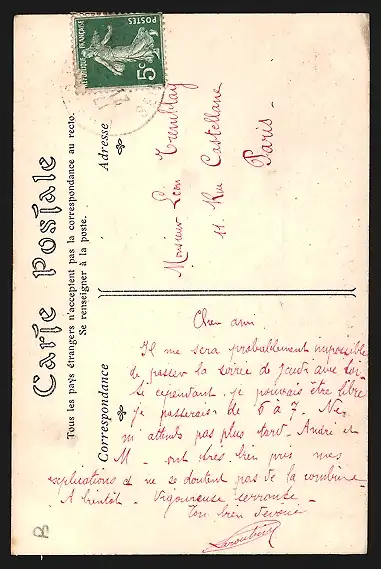 RÉPUBLIQUE FRANÇAISE
POSTES
5c
Carte Postale
Tous les pays étrangers n'acceptent pas la correspondance au recto.
Se renseigner à la poste.
Correspondance
Adresse
Monsieur Léon Tremblay
11 Rue Castellane
Paris -
Cher ami.
Il me sera probablement impossible
de passer la soirée de jeudi avec toi.
Si cependant je pouvais être libre
je passerais de 6 à 7. Ne
m'attends pas plus tard. André et
M - ont très bien pris mes
explications et ne se doutent pas de la combine.
A bientôt. Vigoureuse
Ton bien dévoué